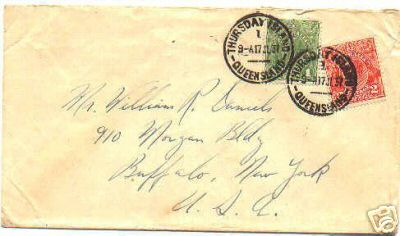 THURSDAY ISLAND
1
QUEENSLAND
THURSDAY ISLAND
QUEENSLAND
2
Mr. William R. Daniels
910 Morgan Bldg
Buffalo, New York
U. S. A.